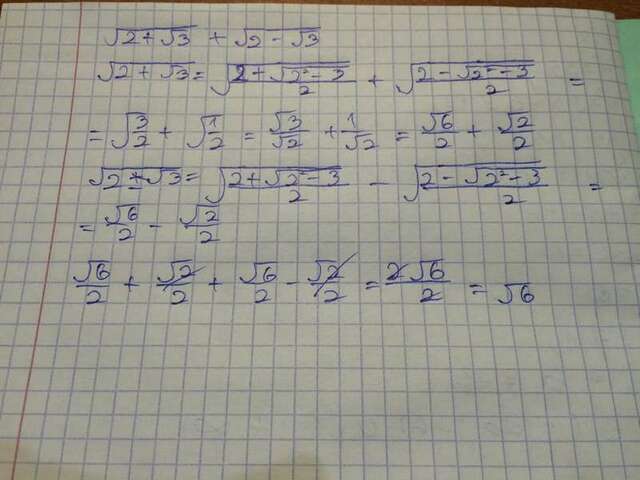 √(2+√3) + √(2-√3)
√(2+√3) = √((2+√(2²-3))/2) + √((2-√(2²-3))/2) =
= √(3/2) + √(1/2) = √3/√2 + 1/√2 = √6/2 + √2/2
√(2±√3) = √((2+√(2²-3))/2) - √((2-√(2²-3))/2) =
= √6/2 - √2/2
√6/2 + √2/2 + √6/2 - √2/2 = 2√6/2 = √6